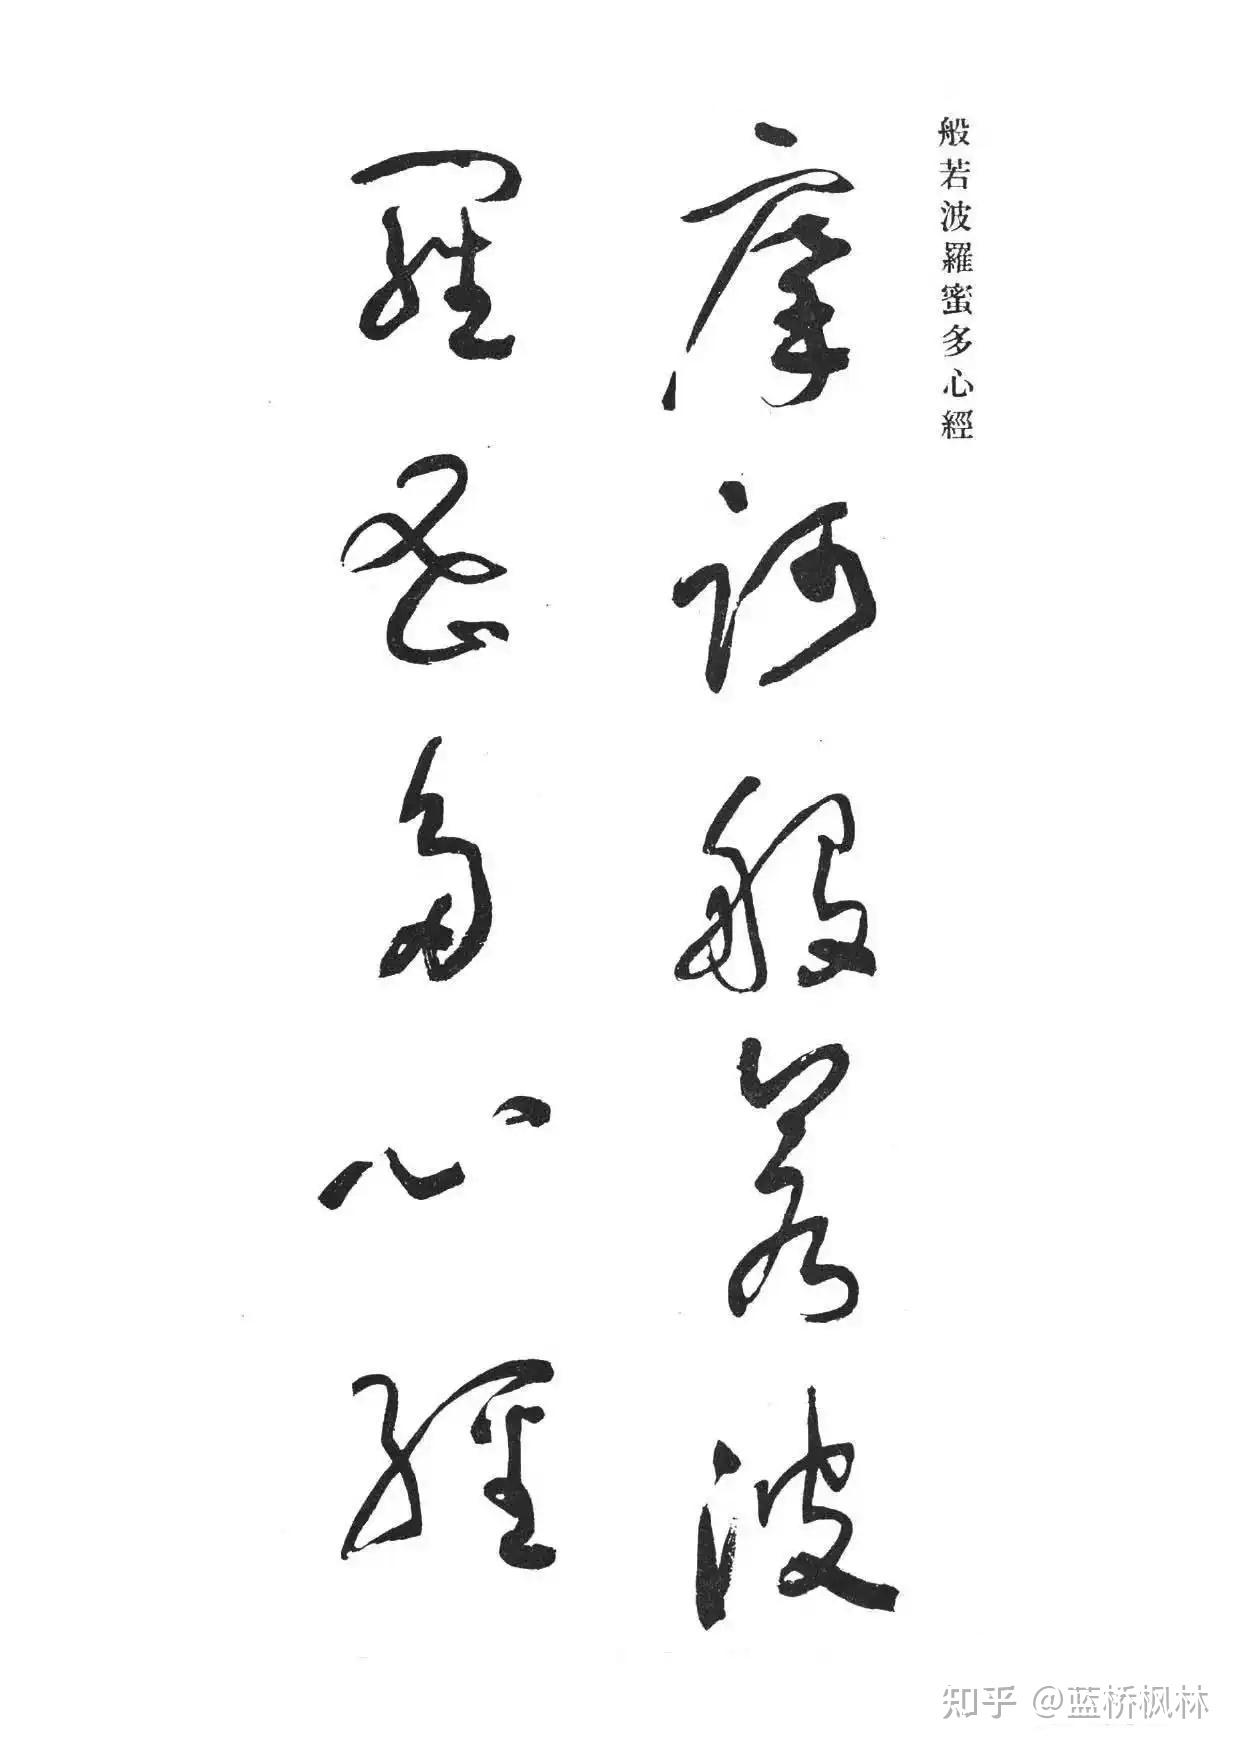 般若波羅蜜多心經
摩訶般若波
羅蜜多心經
知乎 @蓝桥枫林